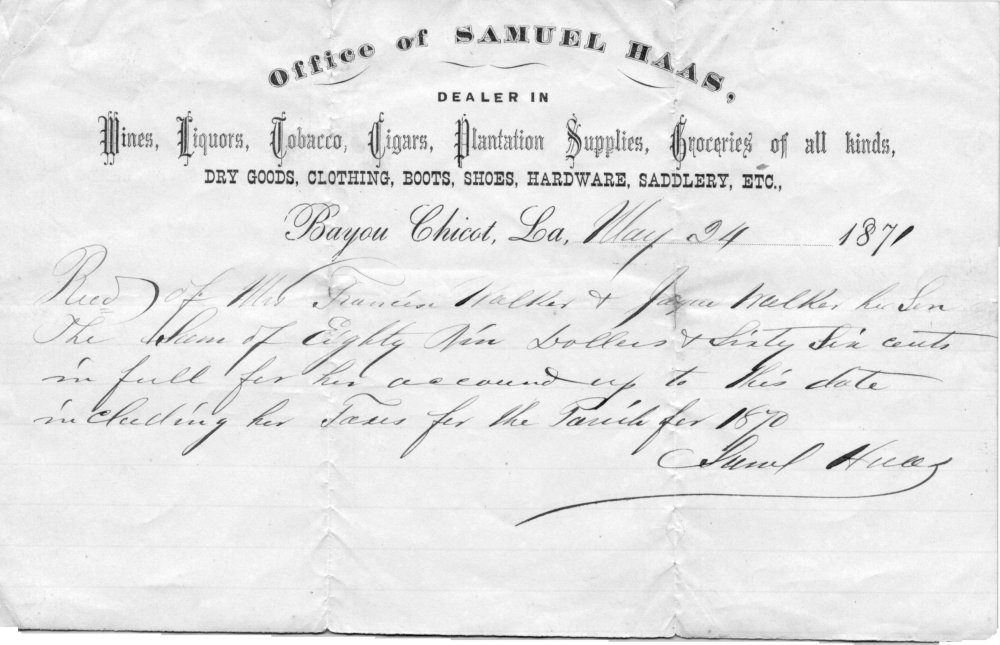 Office of SAMUEL HAAS,
DEALER IN
Wines, Liquors, Tobacco, Cigars, Plantation Supplies, Groceries of all kinds,
DRY GOODS, CLOTHING, BOOTS, SHOES, HARDWARE, SADDLERY, ETC.,
Bayou Chicot, La, May 24 1871
Recd of Mrs Francis Walker & Walker her Son
The Sum of Eighty Nin Dollers & Sixty Six cents
in full for her account up to this date
including her Taxes for the Parish for 1870
Saml Haas